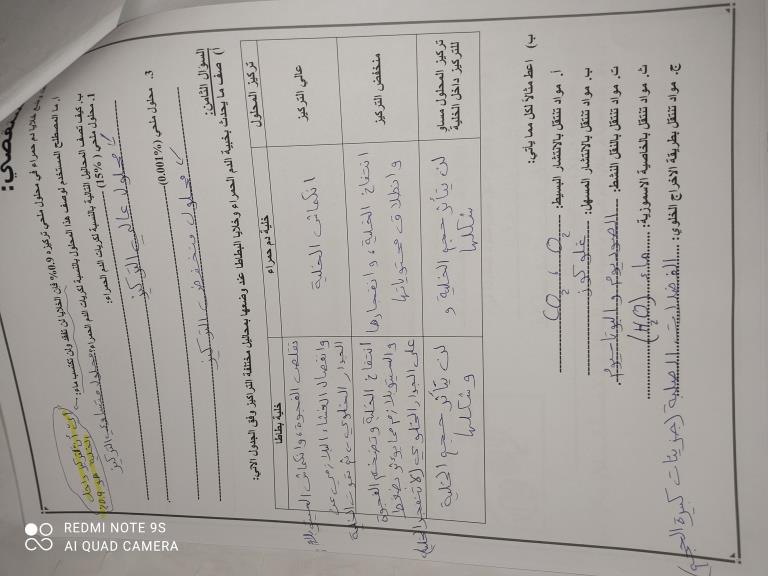 خلايا دم حمراء في محلول ملحي تركيزه 0.9% فإن الخلايا لن تفقد ولن تكتسب ماء:
أ. ما المصطلح المستخدم لوصف هذا المحلول بالنسبة لكريات الدم الحمراء؟ محلول متساوي التركيز
ب. كيف تصف المحاليل التالية بالنسبة لكريات الدم الحمراء:
1. محلول ملحي (15%)
محلول عالي التركيز
3. محلول ملحي (0.001%)
محلول منخفض التركيز
السؤال الثامن:
أ) صف ما يحدث بخلية الدم الحمراء وخلايا البطاطا عند وضعها بمحاليل مختلفة التراكيز وفق الجدول الآتي:
تركيز المحلول
خلية دم حمراء
خلية بطاطا
عالي التركيز
انكماش الخلية
تقلص الفجوة، وانكماش السيتوبلازم،
وانفصال الغشاء البلازمي عن
الجدار الخلوي، ثم تموت الخلية
منخفض التركيز
انتفاخ الخلية، وانفجارها
وانطلاق محتوياتها
انتفاخ الخلية وتضخم الفجوة
والسيتوبلازم مما يؤدي ضغط
على الجدار الخلوي (لا تنفجر الخلية)
تركيز المحلول مساوٍ
للتركيز داخل الخلية
لن يتأثر حجم الخلية و
شكلها
لن يتأثر حجم الخلية
وشكلها
ب) اعط مثالاً لكل مما يأتي:
أ. مواد تنتقل بالانتشار البسيط: CO2 ، O2
ب. مواد تنتقل بالانتشار المسهل: غلوكوز
ت. مواد تنتقل بالنقل النشط: الصوديوم والبوتاسيوم.
ث. مواد تنتقل بالخاصية الاسموزية: ماء (H2O)
ج. مواد تنتقل بطريقة الاخراج الخلوي: الفضلات الصلبة (جزيئات كبيرة الحجم)
REDMI NOTE 9S
AI QUAD CAMERA